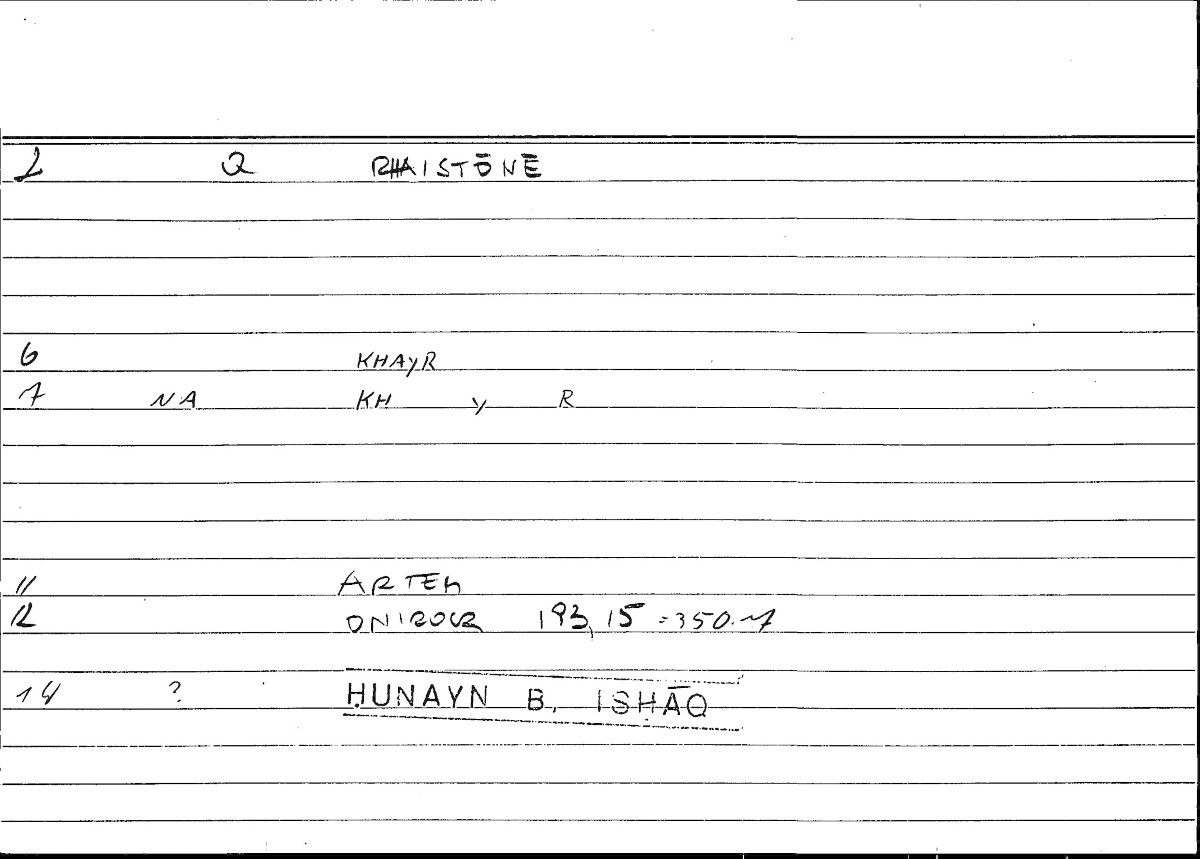 2 Q RHAISTŌNĒ
6 KHAYR
7 NA KH Y R
11 ARTEM
12 ONIROCR 193,15 = 350.7
14 ? ḤUNAYN B. ISḤĀQ